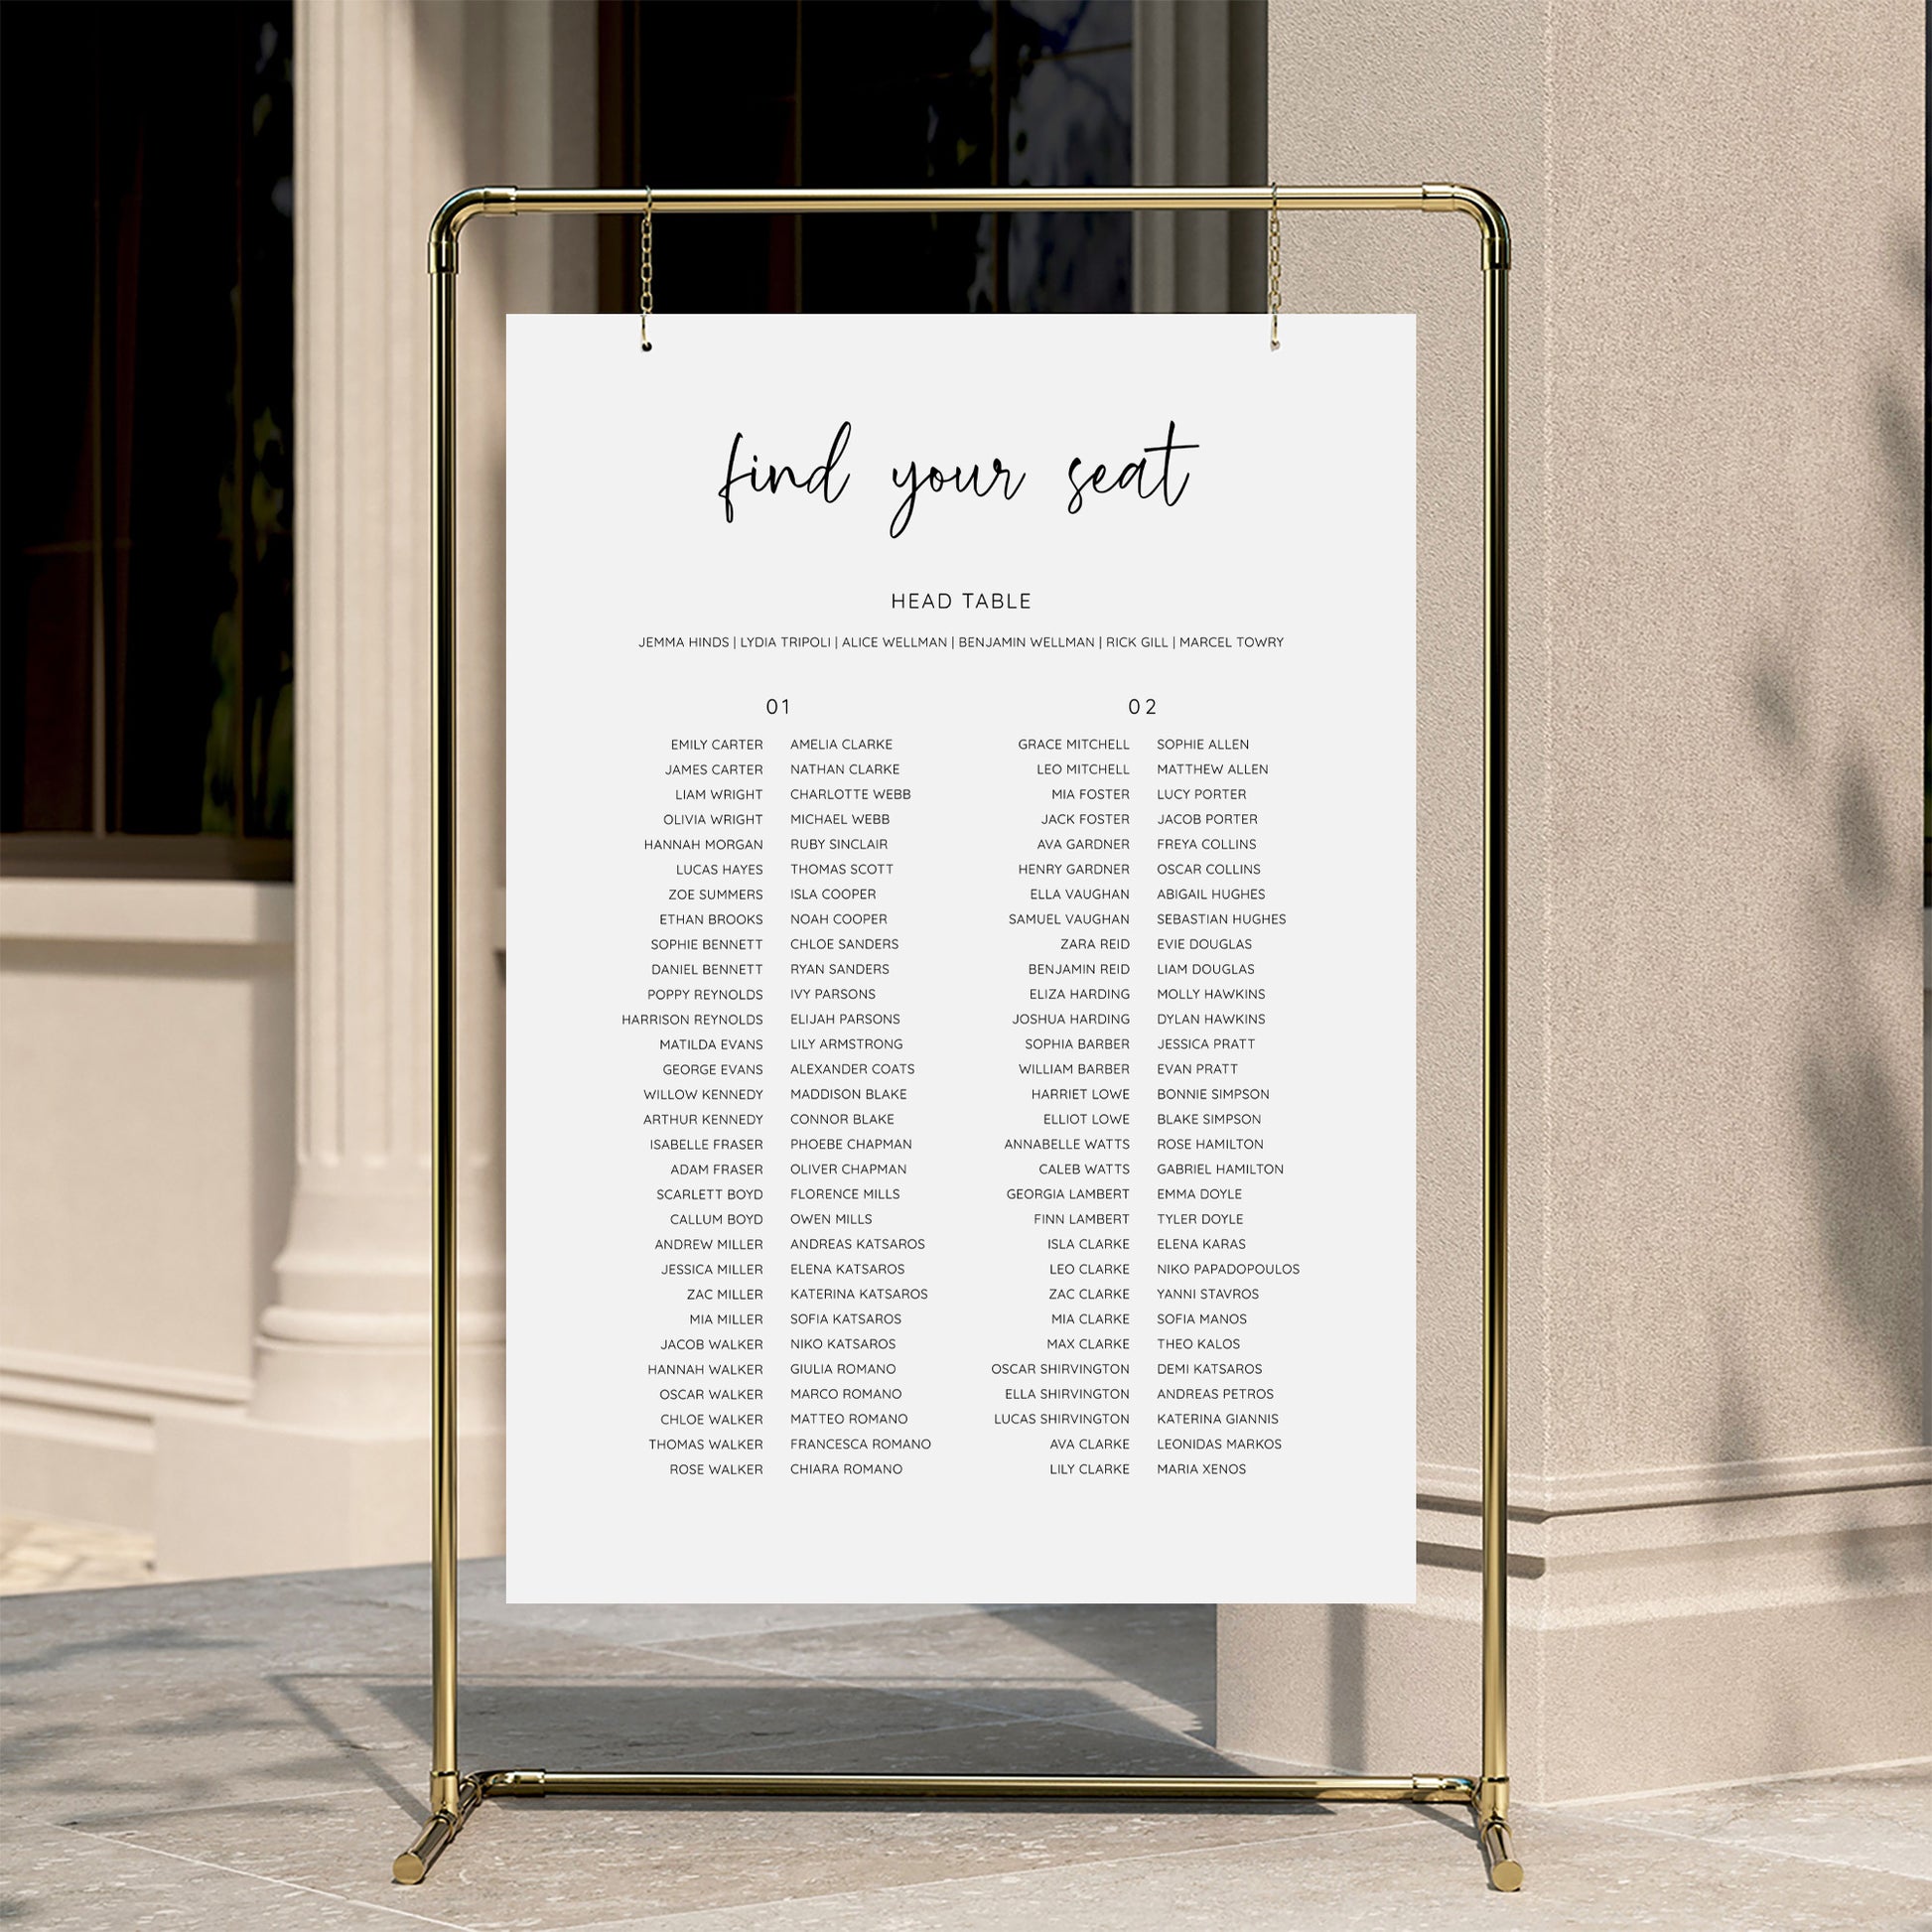 find your seat
HEAD TABLE
JEMMA HINDS | LYDIA TRIPOLI | ALICE WELLMAN | BENJAMIN WELLMAN | RICK GILL | MARCEL TOWRY
01
EMILY CARTER AMELIA CLARKE
JAMES CARTER NATHAN CLARKE
LIAM WRIGHT CHARLOTTE WEBB
OLIVIA WRIGHT MICHAEL WEBB
HANNAH MORGAN RUBY SINCLAIR
LUCAS HAYES THOMAS SCOTT
ZOE SUMMERS ISLA COOPER
ETHAN BROOKS NOAH COOPER
SOPHIE BENNETT CHLOE SANDERS
DANIEL BENNETT RYAN SANDERS
POPPY REYNOLDS IVY PARSONS
HARRISON REYNOLDS ELIJAH PARSONS
MATILDA EVANS LILY ARMSTRONG
GEORGE EVANS ALEXANDER COATS
WILLOW KENNEDY MADDISON BLAKE
ARTHUR KENNEDY CONNOR BLAKE
ISABELLE FRASER PHOEBE CHAPMAN
ADAM FRASER OLIVER CHAPMAN
SCARLETT BOYD FLORENCE MILLS
CALLUM BOYD OWEN MILLS
ANDREW MILLER ANDREAS KATSAROS
JESSICA MILLER ELENA KATSAROS
ZAC MILLER KATERINA KATSAROS
MIA MILLER SOFIA KATSAROS
JACOB WALKER NIKO KATSAROS
HANNAH WALKER GIULIA ROMANO
OSCAR WALKER MARCO ROMANO
CHLOE WALKER MATTEO ROMANO
THOMAS WALKER FRANCESCA ROMANO
ROSE WALKER CHIARA ROMANO
02
GRACE MITCHELL SOPHIE ALLEN
LEO MITCHELL MATTHEW ALLEN
MIA FOSTER LUCY PORTER
JACK FOSTER JACOB PORTER
AVA GARDNER FREYA COLLINS
HENRY GARDNER OSCAR COLLINS
ELLA VAUGHAN ABIGAIL HUGHES
SAMUEL VAUGHAN SEBASTIAN HUGHES
ZARA REID EVIE DOUGLAS
BENJAMIN REID LIAM DOUGLAS
ELIZA HARDING MOLLY HAWKINS
JOSHUA HARDING DYLAN HAWKINS
SOPHIA BARBER JESSICA PRATT
WILLIAM BARBER EVAN PRATT
HARRIET LOWE BONNIE SIMPSON
ELLIOT LOWE BLAKE SIMPSON
ANNABELLE WATTS ROSE HAMILTON
CALEB WATTS GABRIEL HAMILTON
GEORGIA LAMBERT EMMA DOYLE
FINN LAMBERT TYLER DOYLE
ISLA CLARKE ELENA KARAS
LEO CLARKE NIKO PAPADOPOULOS
ZAC CLARKE YANNI STAVROS
MIA CLARKE SOFIA MANOS
MAX CLARKE THEO KALOS
OSCAR SHIRVINGTON DEMI KATSAROS
ELLA SHIRVINGTON ANDREAS PETROS
LUCAS SHIRVINGTON KATERINA GIANNIS
AVA CLARKE LEONIDAS MARKOS
LILY CLARKE MARIA XENOS